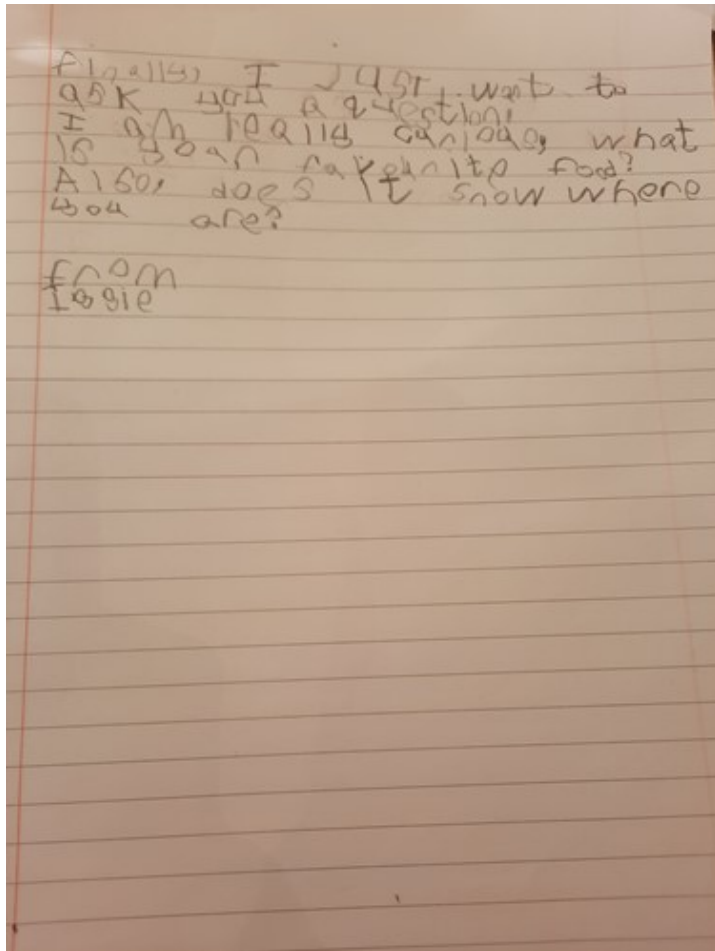 finally, I just want to
ask you a question,
I am really curious, what
is your favourite food?
Also, does it snow where
you are?
from